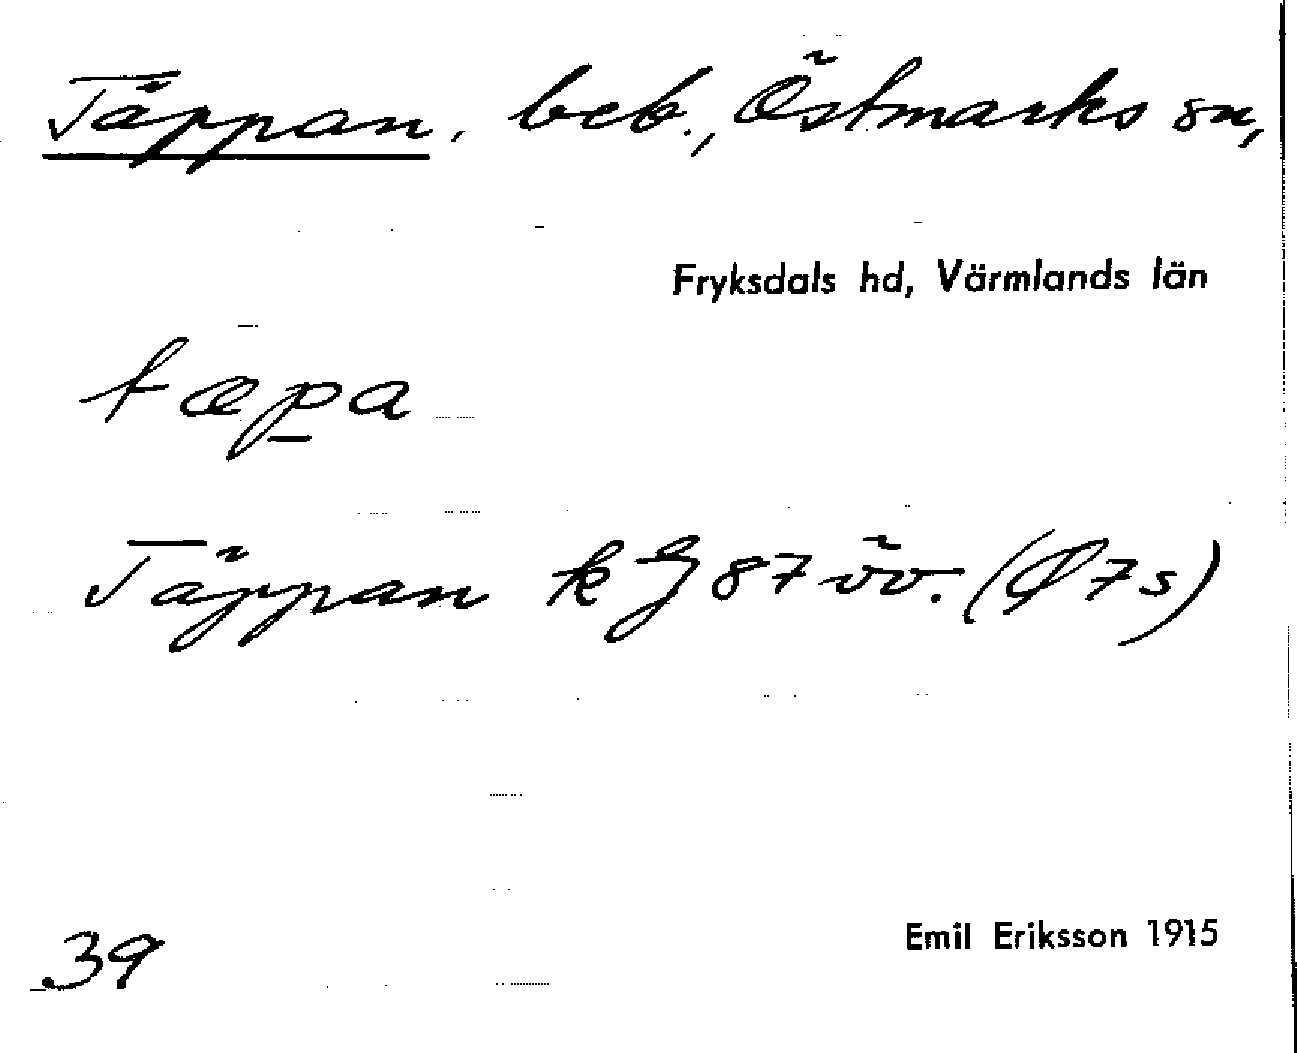 Täppan, beb., Östmarks sn,
Fryksdals hd, Värmlands län
tæpa
Täppan k J 87 öv. (Ø 7s)
39
Emil Eriksson 1915